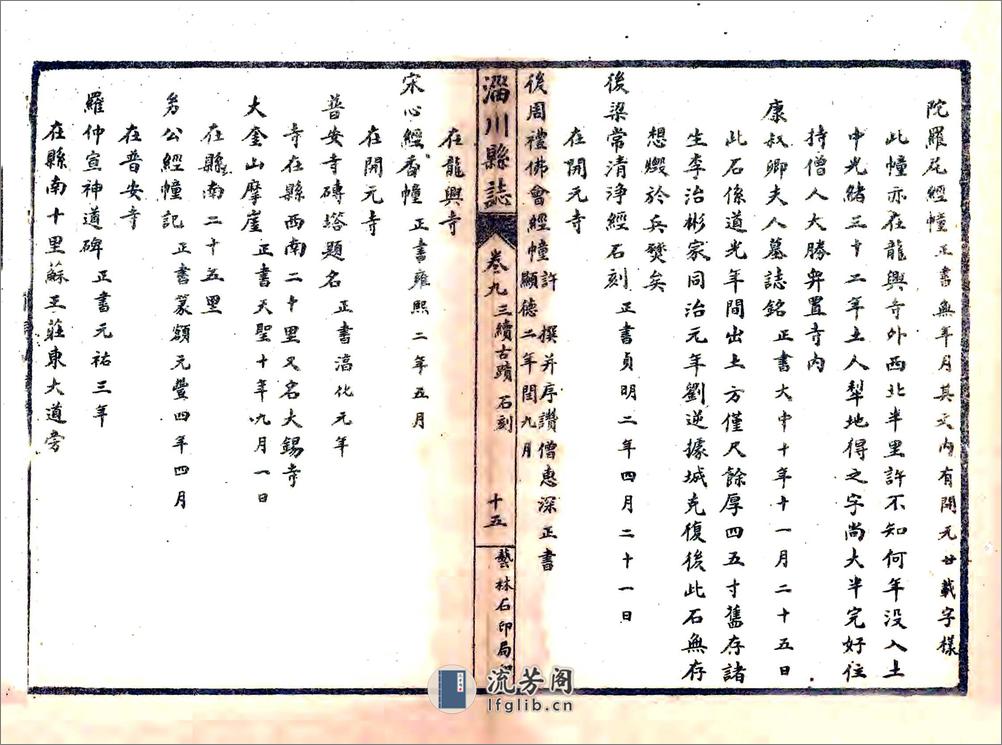 陀羅尼經幢正書無年月其文內有開元廿載字樣
此幢亦在龍興寺外西北半里許不知何年没入土
中光緒三十二年土人犁地得之字尚大半完好住
持僧人大勝舁置寺内
康叔卿夫人墓誌銘正書大中十年十一月二十五日
此石係道光年間出土方僅尺餘厚四五寸舊存諸
生李治彬家同治元年劉逆據城克復後此石無存
想燬於兵燹矣
後梁常清净經石刻正書貞明二年四月二十一日
在開元寺
後周禮佛會經幢許 撰并序讚僧惠深正書
顯德二年閏九月
淄川縣誌
卷九 三續古蹟 石刻
十五
藝林石印局
在龍興寺
宋心經香幢正書雍熙二年五月
在開元寺
普安寺磚塔題名正書淳化元年
寺在縣西南二十里又名大錫寺
大奎山摩崖正書天聖十年九月一日
在縣南二十五里
公經幢記正書篆額元豐四年四月
在普安寺
羅仲宣神道碑正書元祐三年
在縣南十里蘇王莊東大道旁
流芳阁
lfglib.cn